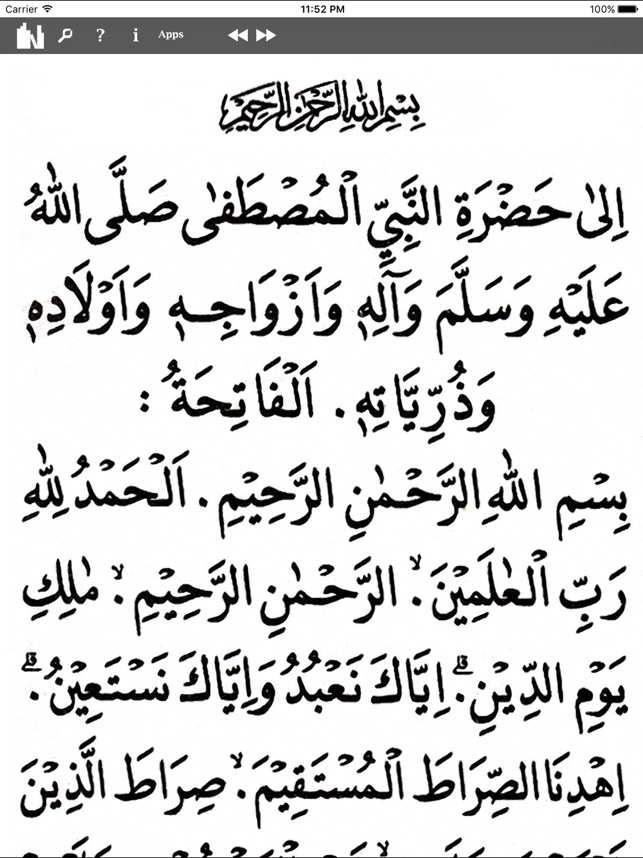 Carrier 11:52 PM 100%
? i Apps
بِسْمِ اللهِ الرَّحْمٰنِ الرَّحِيْمِ
اِلىٰ حَضْرَةِ النَّبِيِّ الْمُصْطَفىٰ صَلَّى اللهُ
عَلَيْهِ وَسَلَّمَ وَآلِهٖ وَاَزْوَاجِهٖ وَاَوْلَادِهٖ
وَذُرِّيَّاتِهٖ. اَلْفَاتِحَةُ :
بِسْمِ اللهِ الرَّحْمٰنِ الرَّحِيْمِ. اَلْحَمْدُ لِلّٰهِ
رَبِّ الْعٰلَمِيْنَۙ. الرَّحْمٰنِ الرَّحِيْمِۙ. مٰلِكِ
يَوْمِ الدِّيْنِۗ. اِيَّاكَ نَعْبُدُ وَاِيَّاكَ نَسْتَعِيْنُۗ.
اِهْدِنَا الصِّرَاطَ الْمُسْتَقِيْمَۙ. صِرَاطَ الَّذِيْنَ